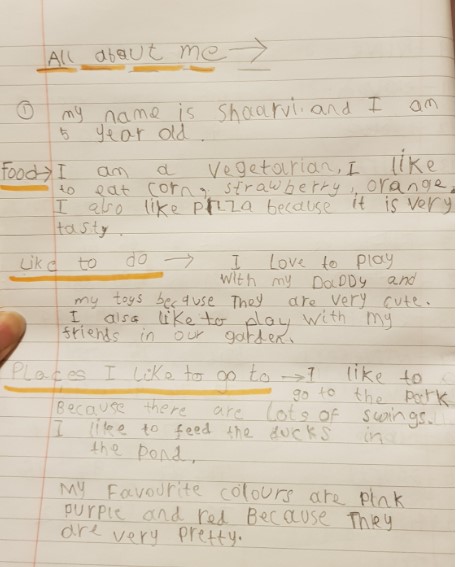 All about me →
① my name is Shaarvi. and I am
5 year old.
Food→ I am a vegetarian, I like
to eat corn, strawberry, orange,
I also like pizza because it is very
tasty.
Like to do → I Love to play
with my DaDDy and
my toys because They are very cute.
I also like to play with my
friends in our garden.
Places I like to go to → I like to
go to the Park
Because there are lots of swings.
I like to feed the ducks in
the pond.
My Favourite colours are pink
purple and red Because They
are very pretty.